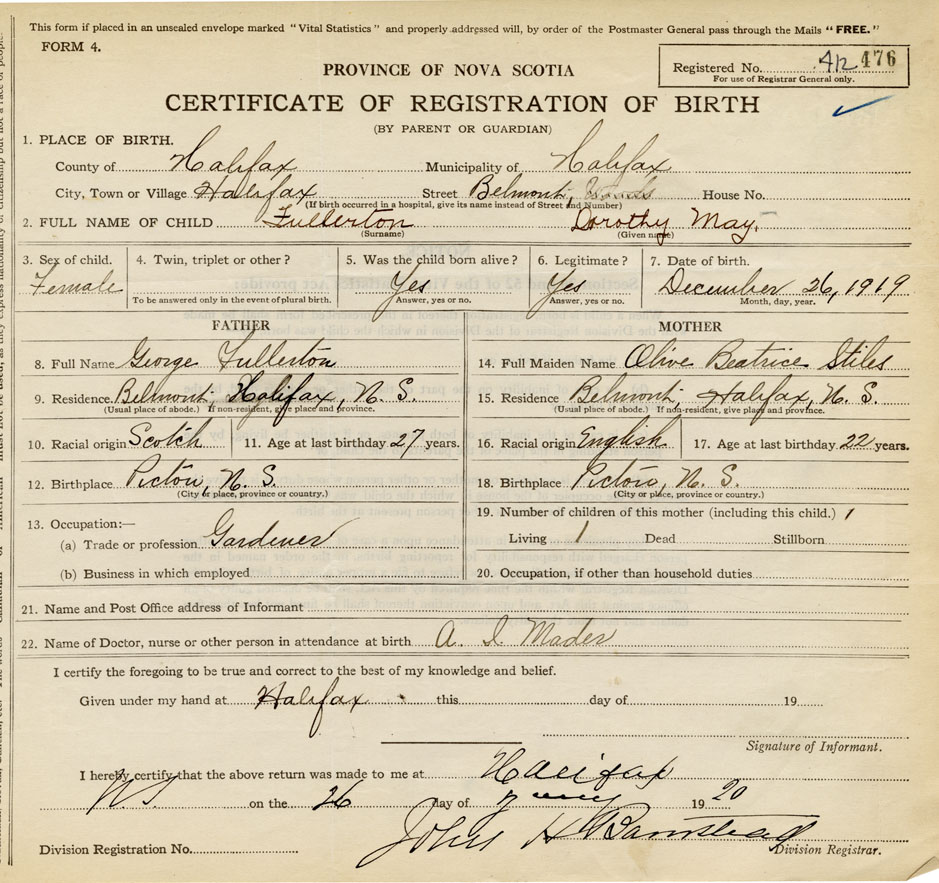 This form if placed in an unsealed envelope marked "Vital Statistics" and properly addressed will, by order of the Postmaster General pass through the Mails "FREE."
FORM 4.
Registered No. 476
For use of Registrar General only.
PROVINCE OF NOVA SCOTIA
CERTIFICATE OF REGISTRATION OF BIRTH
(BY PARENT OR GUARDIAN)
1. PLACE OF BIRTH.
County of Halifax Municipality of Halifax
City, Town or Village Halifax Street Belmont, House No.
(If birth occurred in a hospital, give its name instead of Street and Number)
2. FULL NAME OF CHILD Fullerton Dorothy May.
(Surname) (Given name)
3. Sex of child. 4. Twin, triplet or other? 5. Was the child born alive? 6. Legitimate? 7. Date of birth.
Female Yes Yes December 26, 1919
To be answered only in the event of plural birth. Answer, yes or no. Answer, yes or no. Month, day, year.
FATHER MOTHER
8. Full Name George Fullerton 14. Full Maiden Name Olive Beatrice Stiles
9. Residence. Belmont, Halifax, N. S. 15. Residence Belmont, Halifax, N. S.
(Usual place of abode.) If non-resident, give place and province. (Usual place of abode.) If non-resident, give place and province.
10. Racial origin Scotch 11. Age at last birthday 27 years. 16. Racial origin English 17. Age at last birthday. 22 years.
12. Birthplace Pictou, N. S. 18. Birthplace Pictou, N. S.
(City or place, province or country.) (City or place, province or country.)
13. Occupation:— 19. Number of children of this mother (including this child.) 1
(a) Trade or profession Gardener Living 1 Dead Stillborn
(b) Business in which employed 20. Occupation, if other than household duties
21. Name and Post Office address of Informant
22. Name of Doctor, nurse or other person in attendance at birth A. I. Mader
I certify the foregoing to be true and correct to the best of my knowledge and belief.
Given under my hand at Halifax this day of 19
Signature of Informant.
I hereby certify that the above return was made to me at Halifax
N.S. on the 26 day of 19 20
John H Barnstead
Division Registration No. Division Registrar.